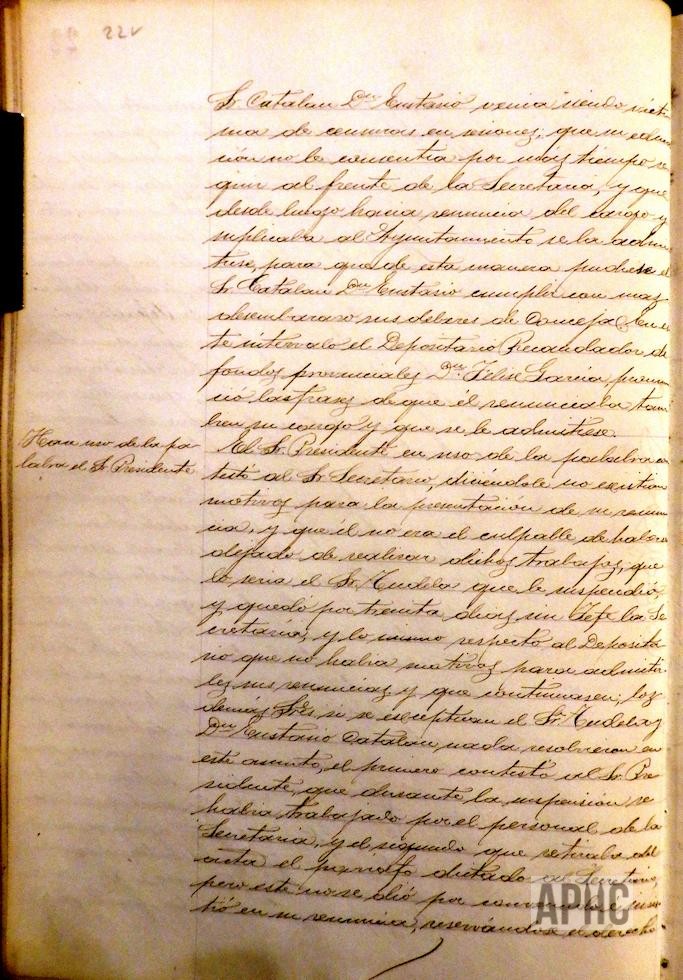 22v
Sr. Catalan Dn Eustasio venia siendo vícti
ma de censuras en sesiones; que su educa
ción no le consentia por más tiempo se
guir al frente de la Secretaria, y que
desde luego hacia renuncia del cargo y
suplicaba al Ayuntamiento se la admi
tiese, para que de esta manera pudiese el
Sr. Catalan Dn Eustasio cumplir con mas
desembarazo sus deberes de Concejal. En es
te intérvalo el Depositario Recaudador de
fondos provinciales Dn Félise Garcia pronun
ció las frases de que el renunciaba tam
bien su cargo y que se le admitiese.
Hace uso de la pa
labra el Sr. Presidente
El Sr. Presidente en uso de la palabra con
testó al Sr. Secretario, diciéndole no existian
motivos para la presentación de su renun
cia, y que él no era el culpable de haber
dejado de realizar dichos trabajos, que
lo seria el Sr. Mudela que le suspendió,
y quedó por treinta dias sin Jefe la Se
cretaria; y lo mismo respecto al Deposita
rio que no habia motivos para admitir
les sus renuncias y que continuasen; los
demas Sres si se exceptuan el Sr. Mudela y
Dn Eustasio Catalan, nada resolvieron en
este asunto, el primero contestó al Sr. Pre
sidente, que durante la suspensión se
habia trabajado por el personal de la
Secretaria, y el segundo que retiraba del
acta el parrafo dictado al Secretario,
pero este no se dió por convencido e insis
tió en su renuncia, reservándose el derecho
APHC